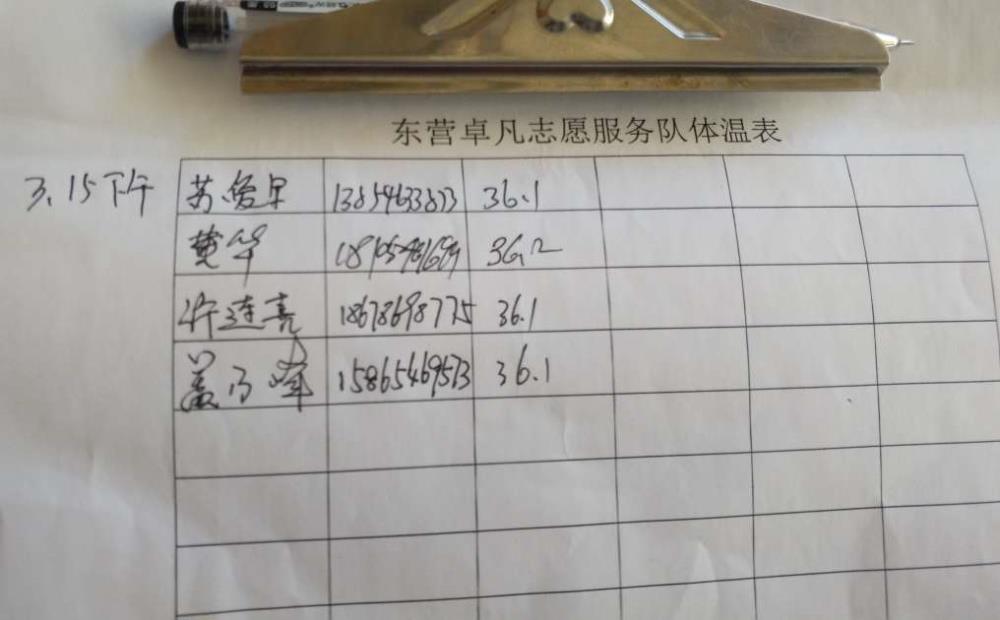 东营卓凡志愿服务队体温表
3.15下午 苏爱早 13854633873 36.1
黄华 36.2
许连亮 18678698775 36.1
盖乃峰 15865469573 36.1